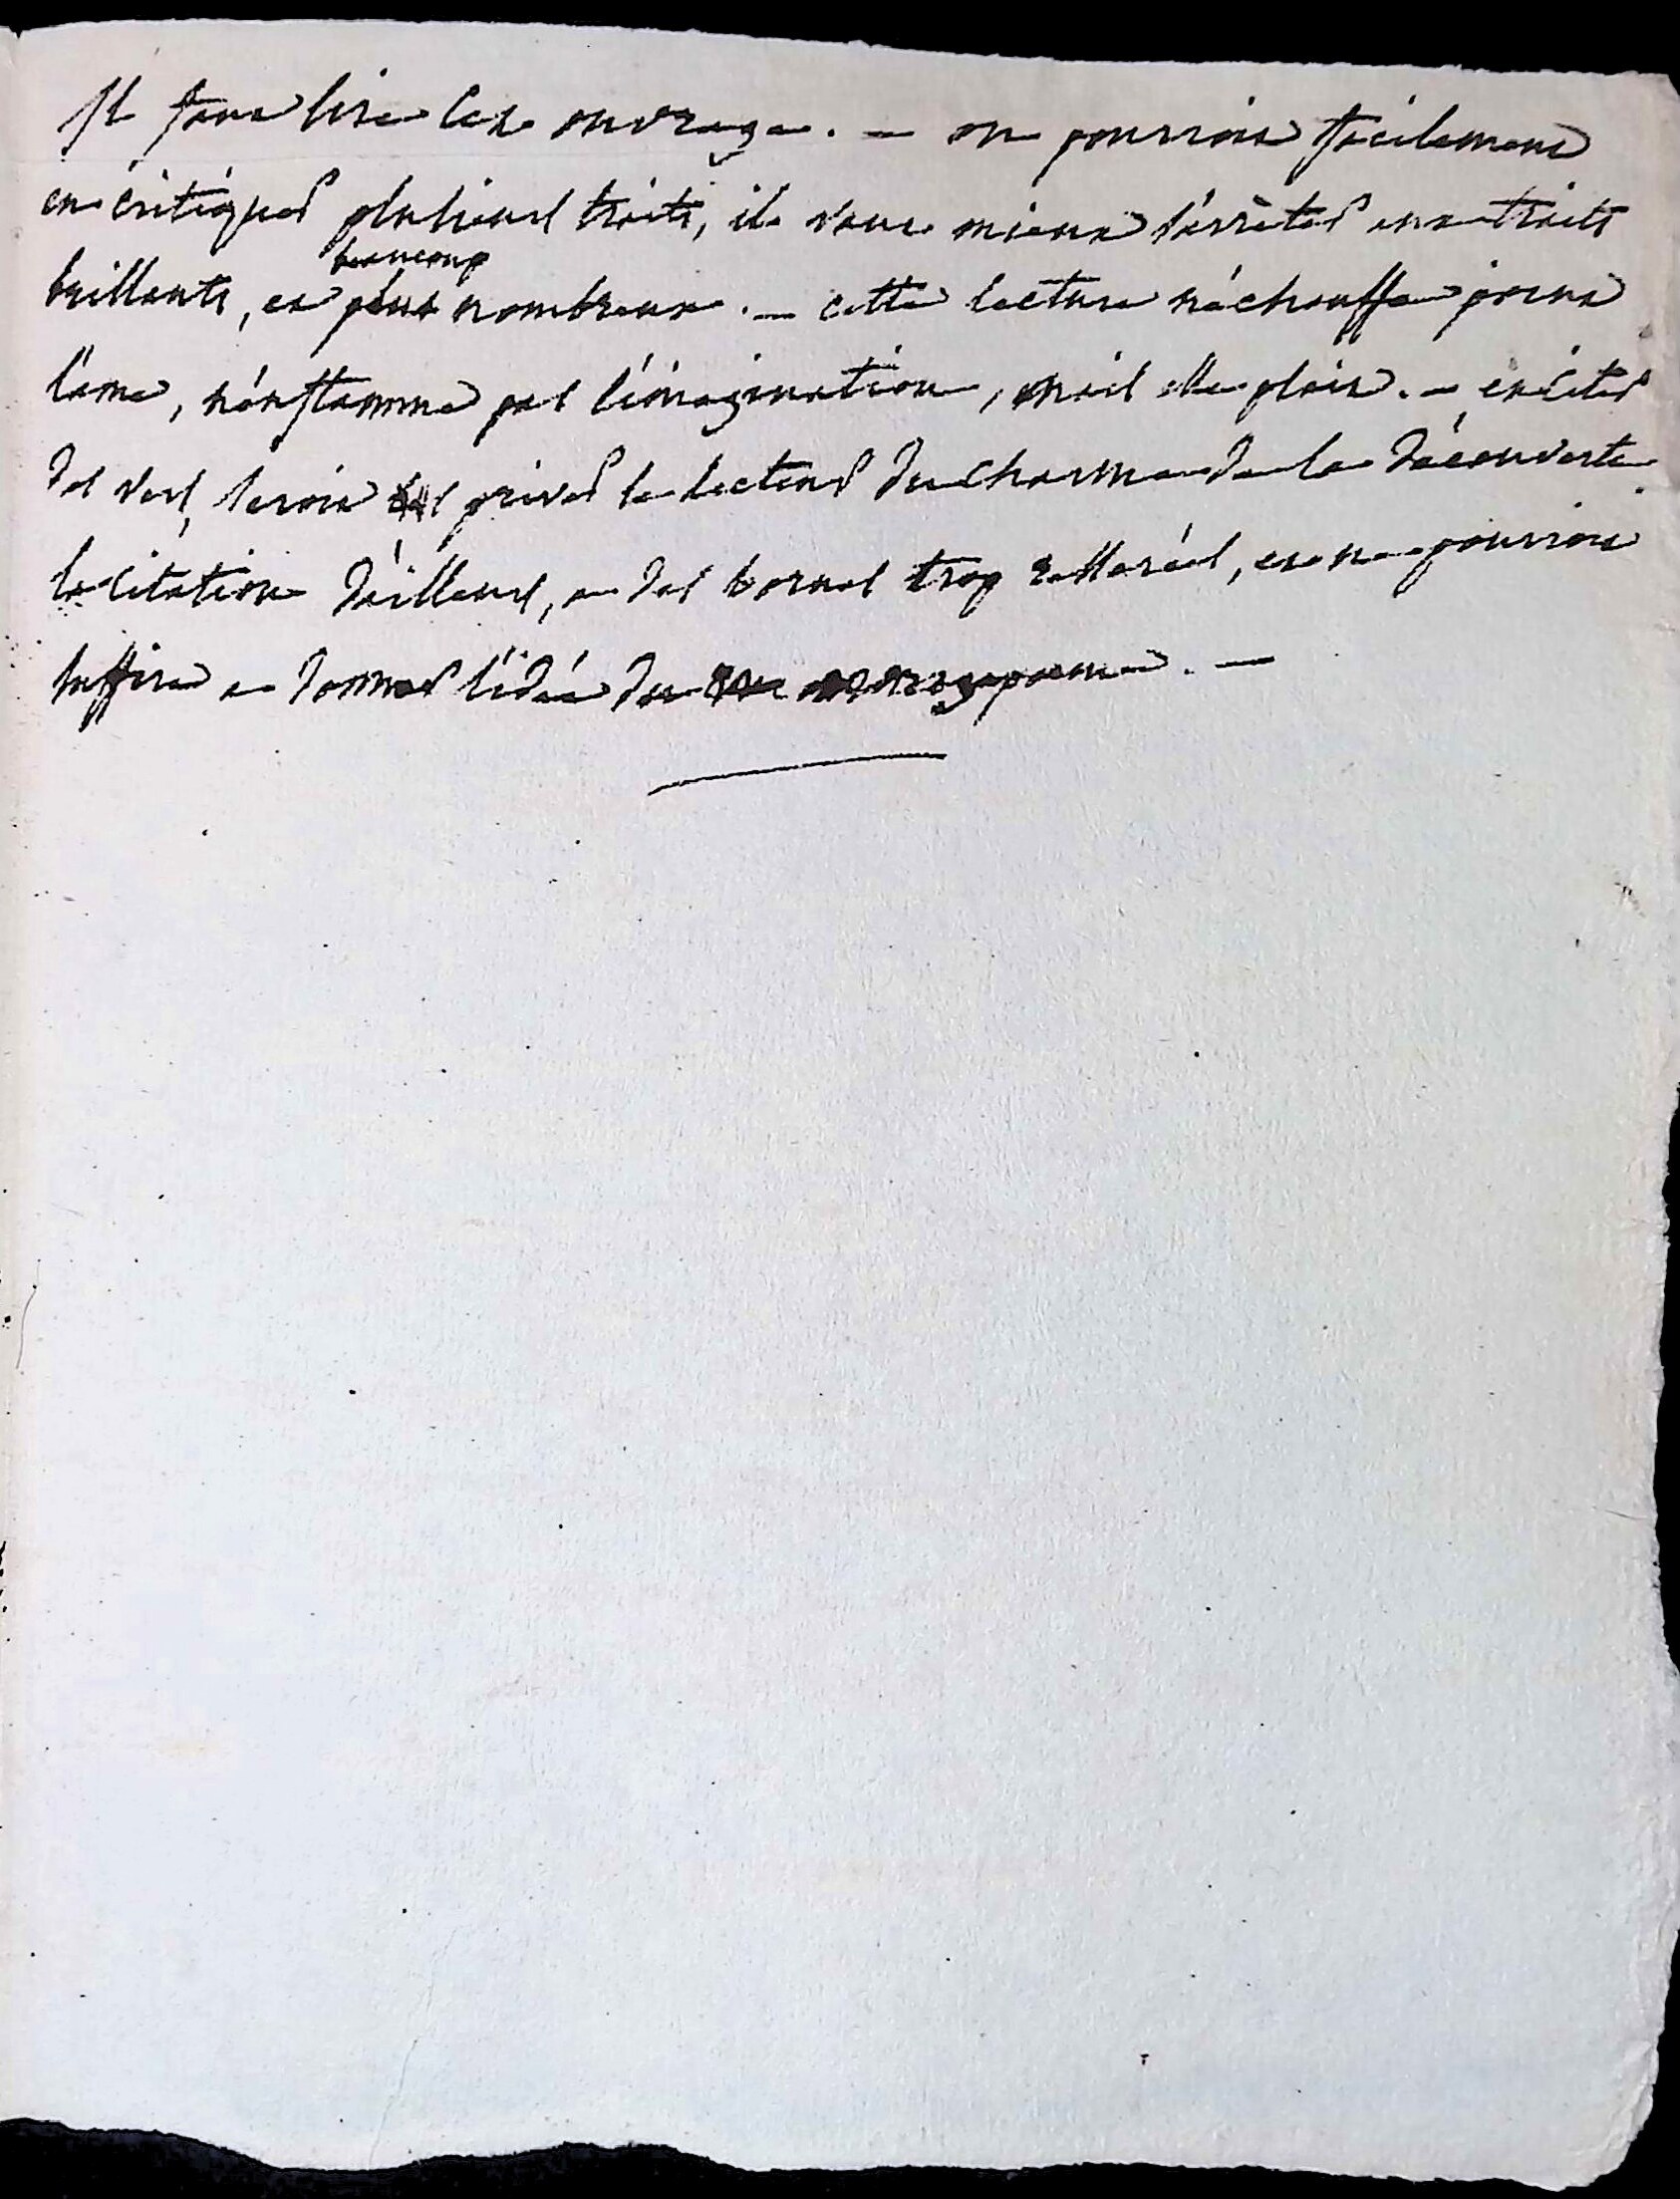 Il faut lire cet ouvrage. — on pourroit facilement
en critiquer plusieurs traits, il vaut mieux s'arrêter aux traits
beaucoup
brillants, et plus nombreux. — cette lecture n'échauffe point
l'ame, n'enflamme pas l'imagination, mais elle plait. — en citer
des vers, seroit priver le lecteur du charme de la découverte.
la citation d'ailleurs, a des bornes trop resserrées, et ne pourroit
suffire a donner l'idée du poeme. —